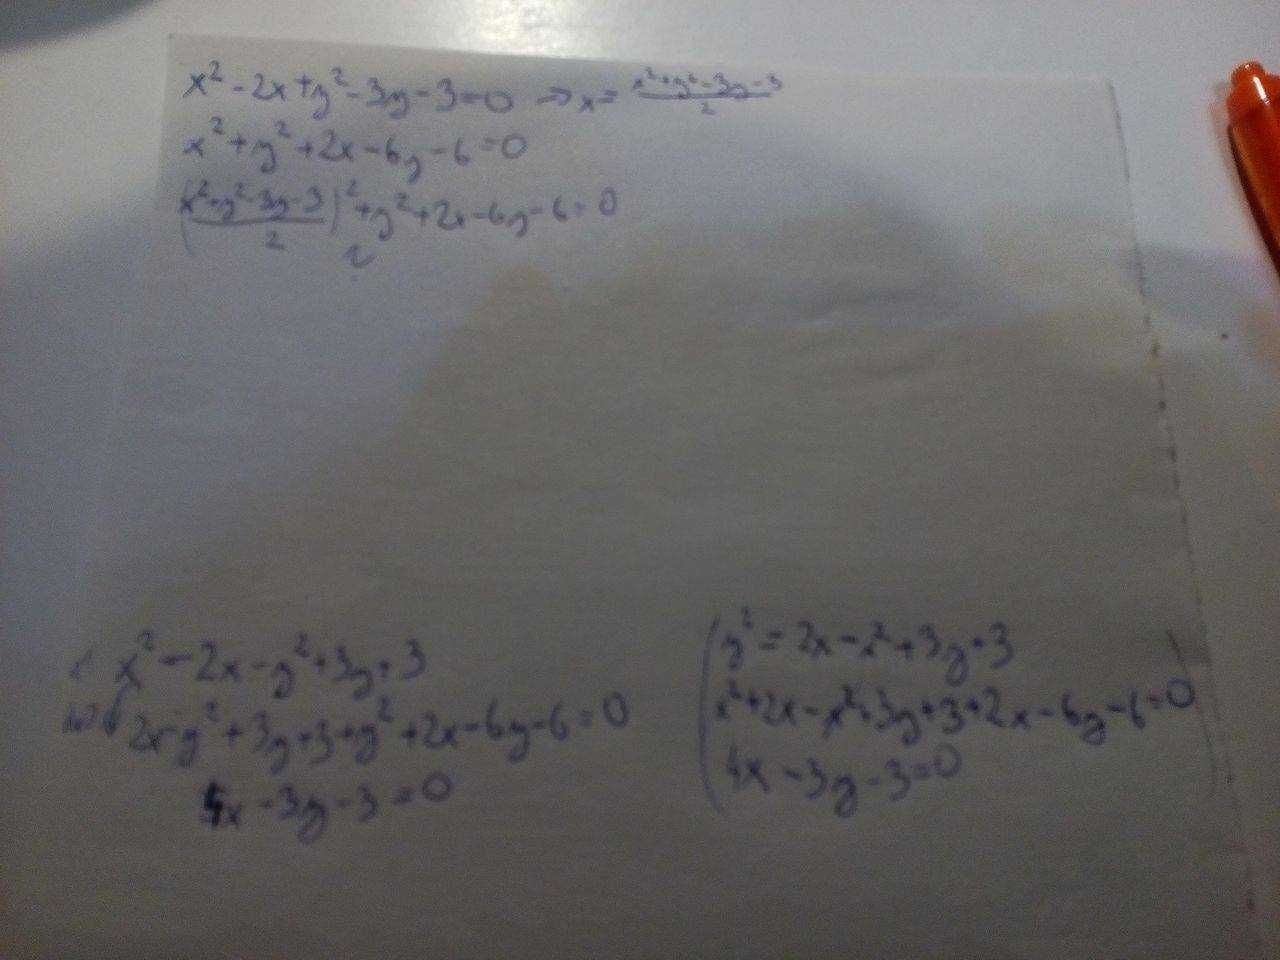 x² - 2x + y² - 3y - 3 = 0 → x = (x² + y² - 3y - 3)/2
x² + y² + 2x - 6y - 6 = 0
((x² + y² - 3y - 3)/2)² + y² + 2x - 6y - 6 = 0
2
x² - 2x - y² + 3y + 3
2x - y² + 3y + 3 + y² + 2x - 6y - 6 = 0
4x - 3y - 3 = 0
y² = 2x - x² + 3y + 3
x² + 2x - x² + 3y + 3 + 2x - 6y - 6 = 0
4x - 3y - 3 = 0